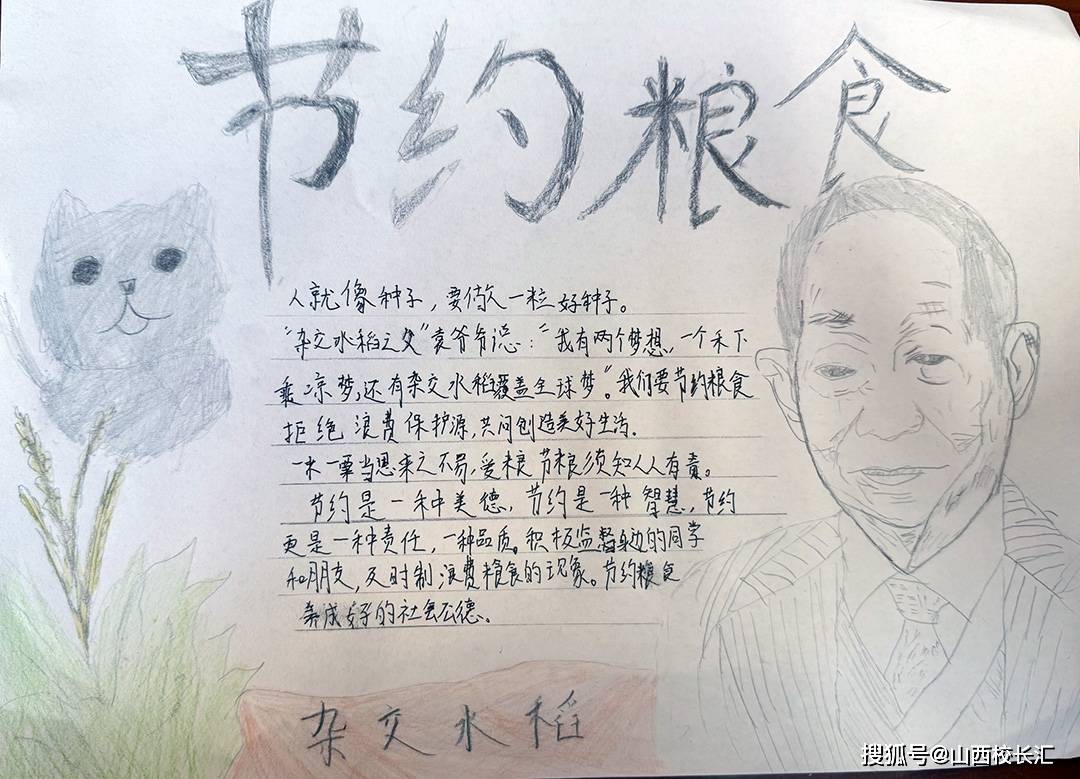 节约粮食
人就像种子，要做人一粒好种子。
“杂交水稻之父”袁爷爷说：“我有两个梦想，一个禾下
乘凉梦，还有杂交水稻覆盖全球梦”。我们要节约粮食
拒绝浪费保护源，共同创造美好生活.
一木一粟当思来之不易，爱粮节粮须知人人有责。
节约是一种美德，节约是一种智慧，节约
更是一种责任，一种品质。积极监督身边的同学
和朋友，及时制浪费粮食的现象。节约粮食
养成好的社会公德。
杂交水稻
搜狐号@山西校长汇